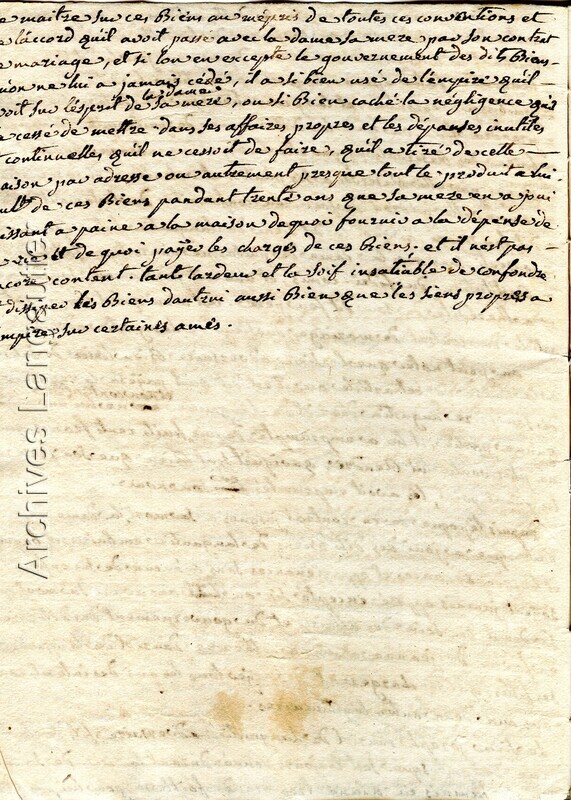 e maitre sur ces Biens au mépris de toutes ces conventions et
e láccord quil avoit passé avec la dame sa mere par son contrat
e mariage, et si lon en excepte le gouvernement des dits Biens
quon ne lui a jamais cédé, il a si bien usé de lémpire quil
voit sur lésprit de la dame sa mere, ou si Bien caché la négligence quil
a cessé de mettre dans ses affaires propres et les dépanses inutiles
t continuelles quil ne cessoit de faire, quil a tiré de celle
aison par adresse ou autrement presque tout le produit a lui
de ces Biens pandant trente ans que sa mere en a joui
issant a paine a la maison de quoi fournir a la dépense de
vie et de quoi paÿer les charges de ces Biens. et il nést pas
ncore content. tant lardeur et la soif insatiable de confondre
dissiper les Biens dautrui aussi Bien que les siens propres a
empire sur certaines ames.
Archives Lan